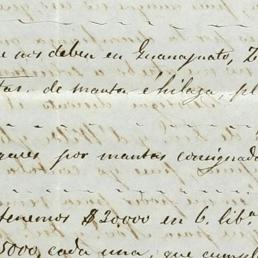 nos deben en Guanajuato, Z
tas. de manta é hilaza, pl
por mantas consignada
tenemos $20000 en 6. lib.ᵃ
5000 cada una, que cumpl